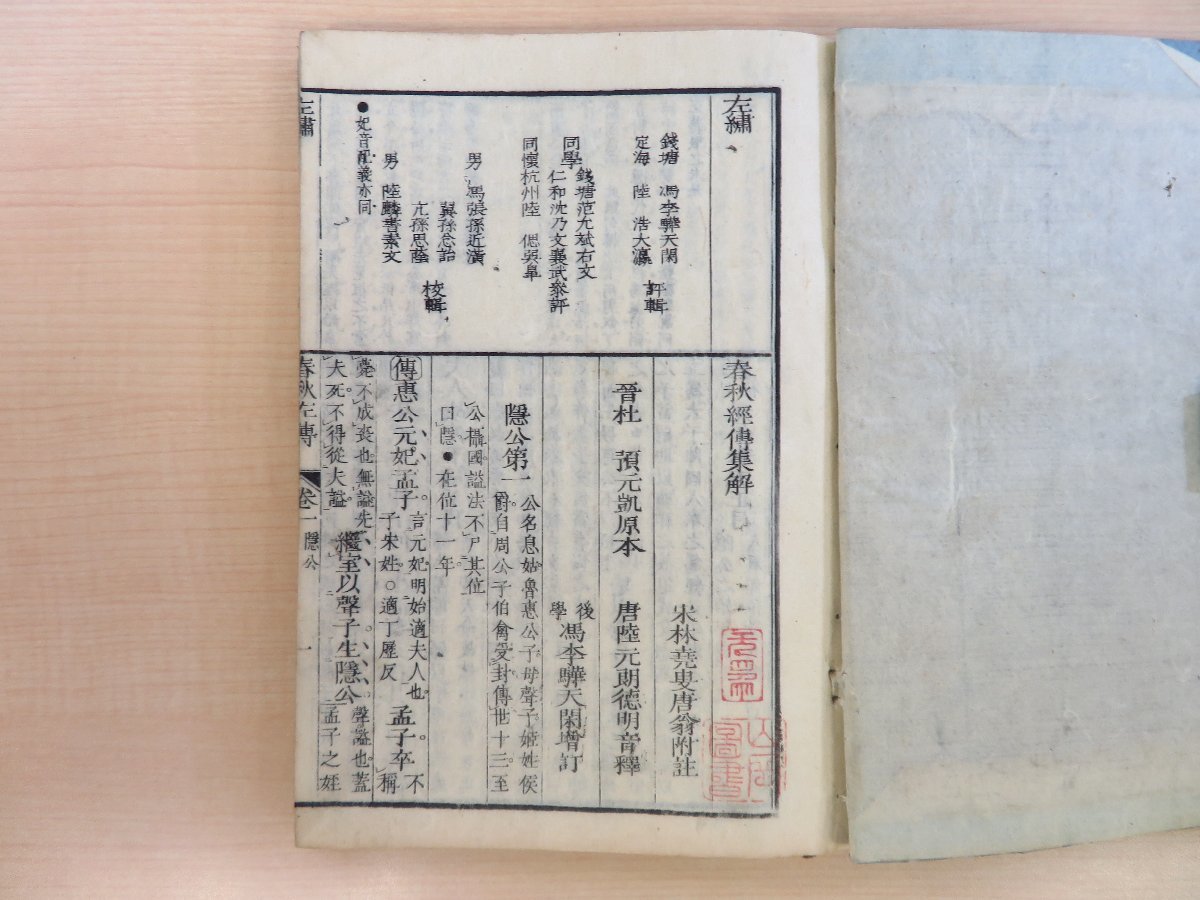 左繡
錢塘 馮李驊天閑
定海 陸 浩大瀛
評輯
錢塘范允斌右文
同學
仁和沈乃文襄武參評
同懷杭州陸 偲巽皐
男 馮張孫近潢
翼孫念詒
亢孫思陸
男 陸麟書素文
校輯
●妃音配義亦同
左繡
春秋經傳集解
宋林堯叟唐翁附註
晉杜 預元凱原本 唐陸元朗德明音釋
後學 馮李驊天閑增訂
隱公第一
公名息姑魯惠公子母聲子姬姓侯
爵自周公子伯禽受封傳世十三至
公攝國謚法不尸其位
曰隱●在位十一年
傳惠公元妃孟子
言元妃明始適夫人也
子宋姓○適丁歷反
孟子卒
不稱
薨不成喪也無謚先
夫死不得從夫謚
繼室以聲子生隱公
聲謚也蓋
孟子之姪
春秋左傳 卷一 隱公 一